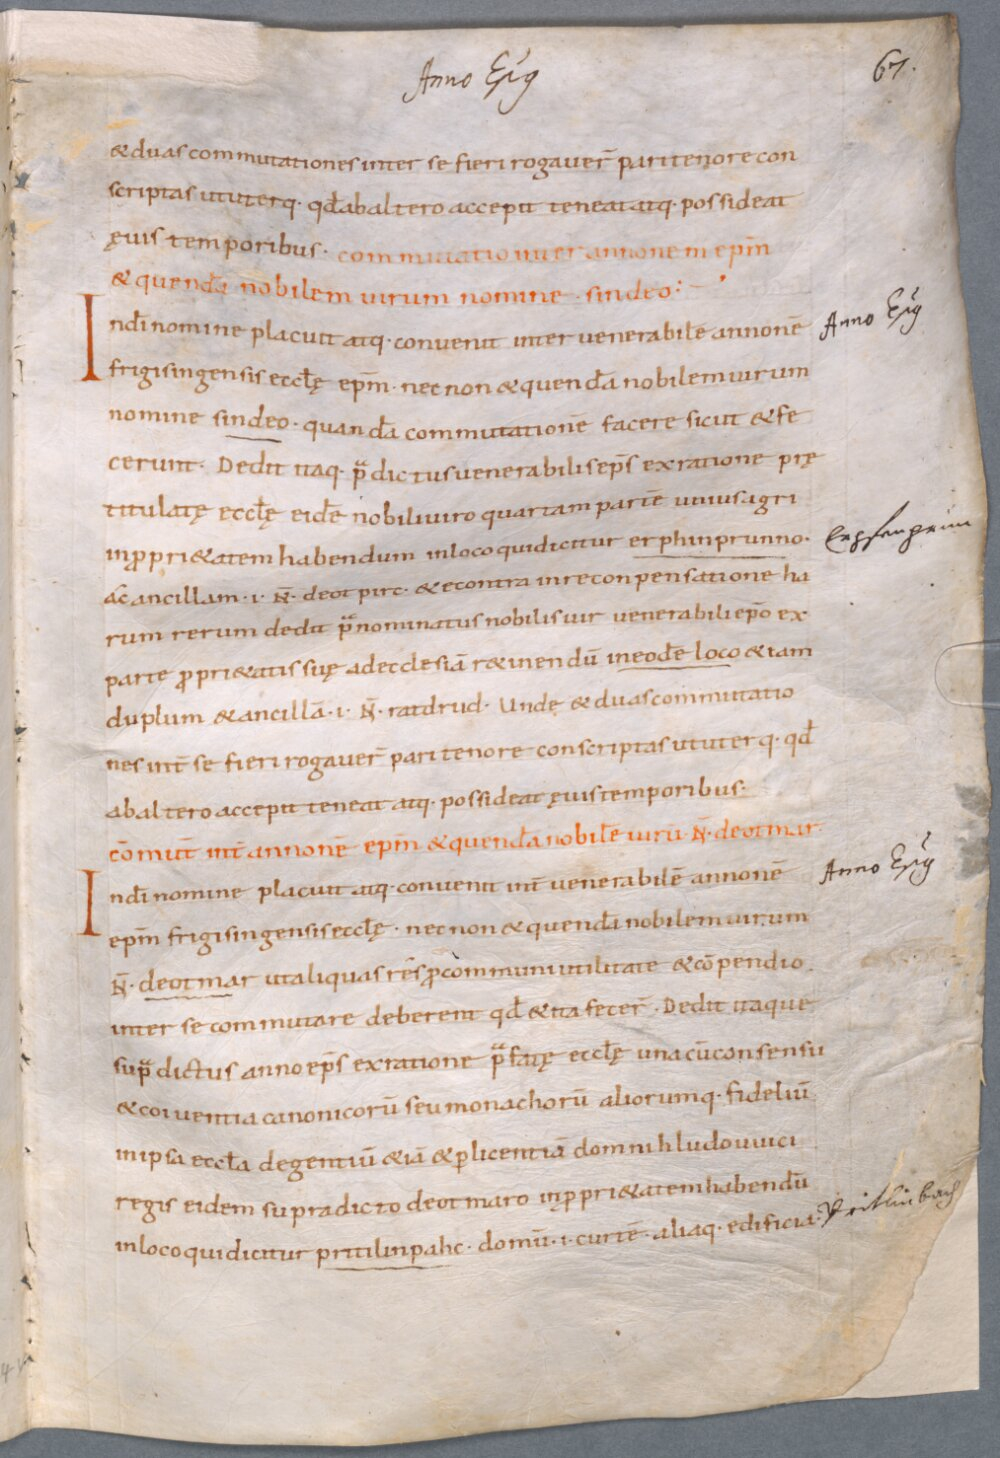 Anno Epõ
67.
& duas commutationes inter se fieri rogaver̄ pari tenore con
scriptas ut uterq· qd̄ ab altero accepit teneat atq· possideat
ęuis temporibus· commutatio inter annonem ep̄m
& quendā nobilem uirum nomine sindeo:
In dī nomine placuit atq· conuenit inter uenerabilē annonē
Anno Epõ
frigisingensis eccłę ep̄m· nec non & quendā nobilem uirum
nomine sindeo· quandā commutationē facere sicut & fe
cerunt· Dedit itaq· p̄dictus uenerabilis ep̄s ex ratione prę
titulatę eccłę eidē nobili uiro quartam partē unius agri
in propri&atem habendum in loco qui dicitur erphinprunno·
ac ancillam ·i· N̄· deotpirc· & econtra in reconpensatione ha
rum rerum dedit p̄nominatus nobilis uir uenerabili ep̄o ex
parte ꝓpri&atis suę ad ecclesiā r&inendū in eodē loco &iam
duplum & ancillā ·i· N̄· ratdrud· Unde & duas commutatio
nes int̄ se fieri rogaver̄ pari tenore conscriptas ut uterq· qd̄
ab altero accepit teneat atq· possideat ęuis temporibus·
cōmut̄ int̄ annonē ep̄m & quendā nobilē uirū N̄· deotmar·
In dī nomine placuit atq· conuenit int̄ uenerabilē annonē
Anno Epõ
ep̄m frigisingensis eccłę· nec non & quendā nobilem uirum
N̄· deotmar ut aliquas rēs ꝓ communi utilitate & cōpendio
inter se commutare deberent qd̄ & ita fecer̄· Dedit itaque
sup̄dictus anno ep̄s ex ratione p̄fatę eccłę una cū consensu
& coniuentia canonicorū seu monachorū aliorumq· fideliū
in ipsa eccła degentiū &iā & ꝑ licentiā domni hludouuici
regis eidem supradicto deotmaro in propri&atem habendū
in loco qui dicitur pritilinpahc· domū ·i· curtē· aliaq· edificia·
Pritlinbach